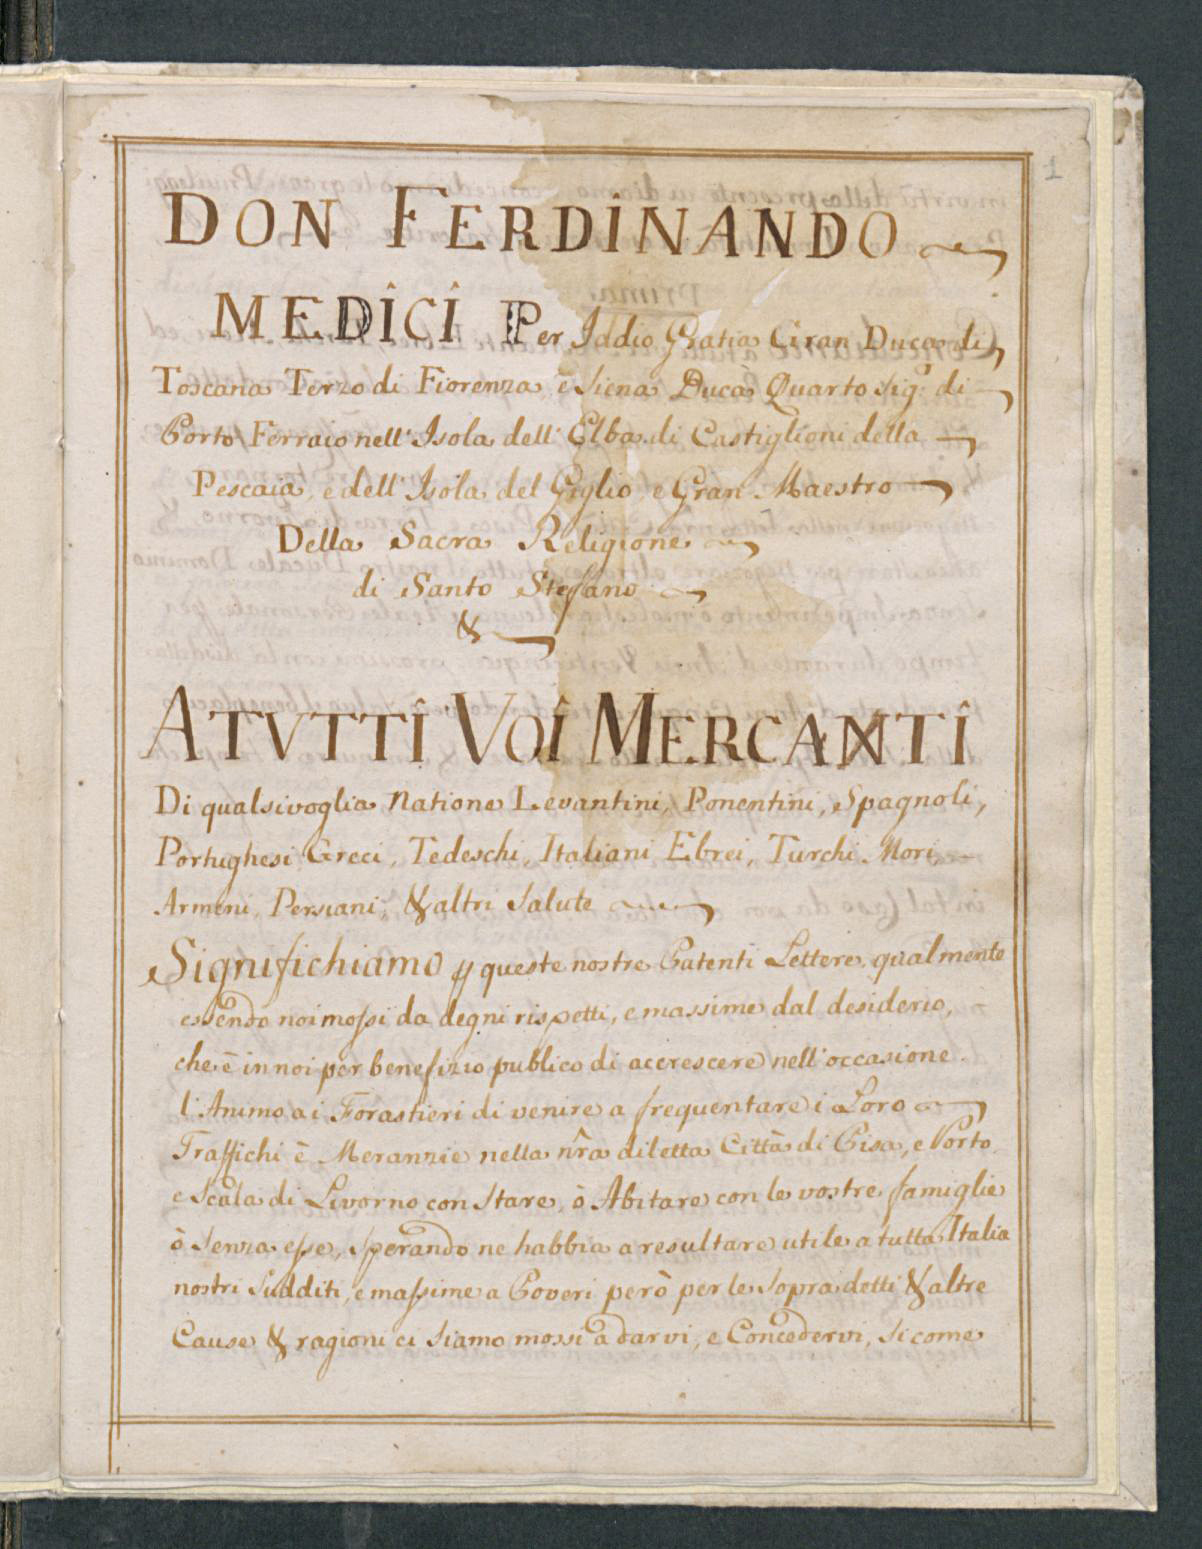 1
DON FERDINANDO
MEDICI Per Iddio Gratia Gran Duca di
Toscana Terzo di Fiorenza, e Siena Ducà Quarto sig.r di
Porto Ferraio nell' Isola dell' Elba di Castiglioni della
Pescaia, e dell' Isola del Giglio, e Gran Maestro
Della Sacra Religione
di Santo Stefano
&
A TVTTI VOI MERCANTI
Di qualsivoglia Natione Levantini, Ponentini, Spagnoli,
Portughesi Greci, Tedeschi, Italiani Ebrei, Turchi Mori,
Armeni, Persiani, & altri Salute
Significhiamo p queste nostre Patenti Lettere, qualmente
essendo noi mossi da degni rispetti, e massime dal desiderio,
che è in noi per benefizio publico di accrescere nell'occasione
l'Animo a i Forastieri di venire a frequentare i Loro
Traffichi è Meranzie nella nr̃a diletta Città di Pisa, e Porto
e Scala di Livorno con Stare, ò Abitare con le vostre famiglie
ò Senza esse, Sperando ne habbia a resultare utile a tutta Italia
nostri Sudditi, e massime a Poveri però per le Sopra detti & altre
Cause & ragioni ci Siamo mossi a darvi, e Concedervi, Si come